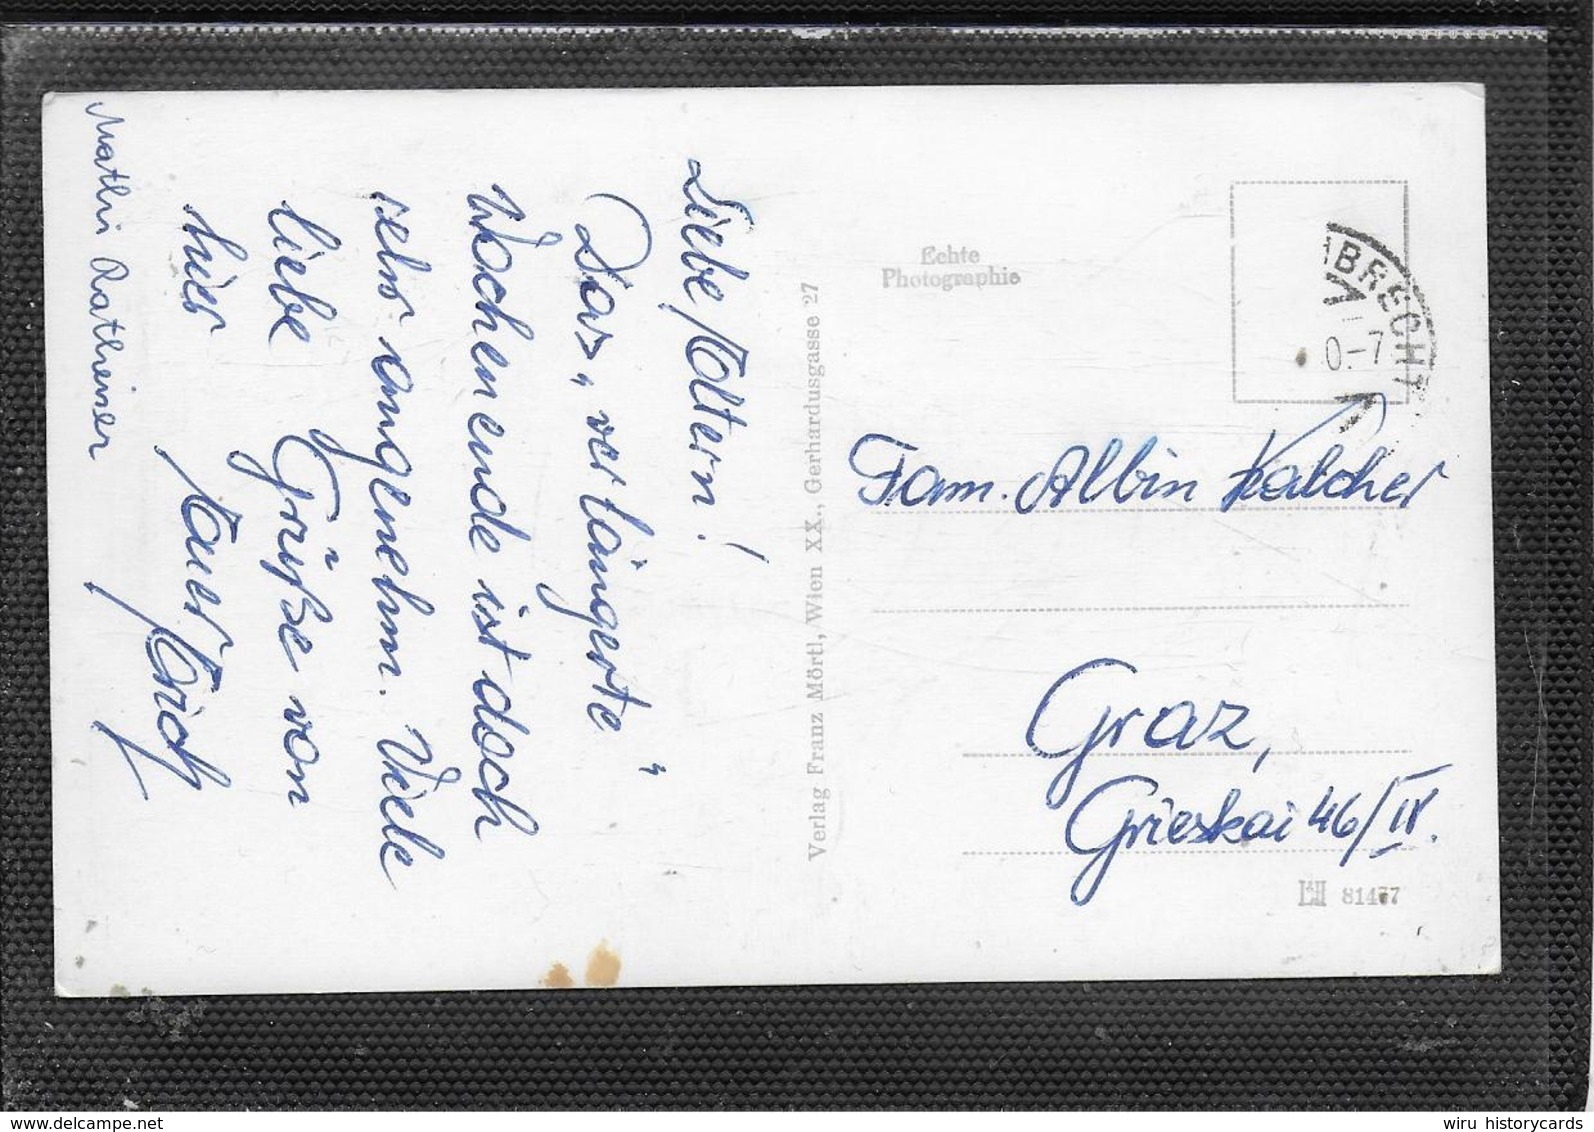 Liebe Eltern!
Das „verlängerte"
Wochenende ist doch
sehr angenehm. Viele
liebe Grüße von
hier Euer Erich
Echte
Photographie
Verlag Franz Mörtl, Wien XX., Gerhardusgasse 27
BRECHT
0-7
Fam. Albin Kalcher
Graz,
Grieskai 46/IV.
81477
www.delcampe.net
wiru historycards